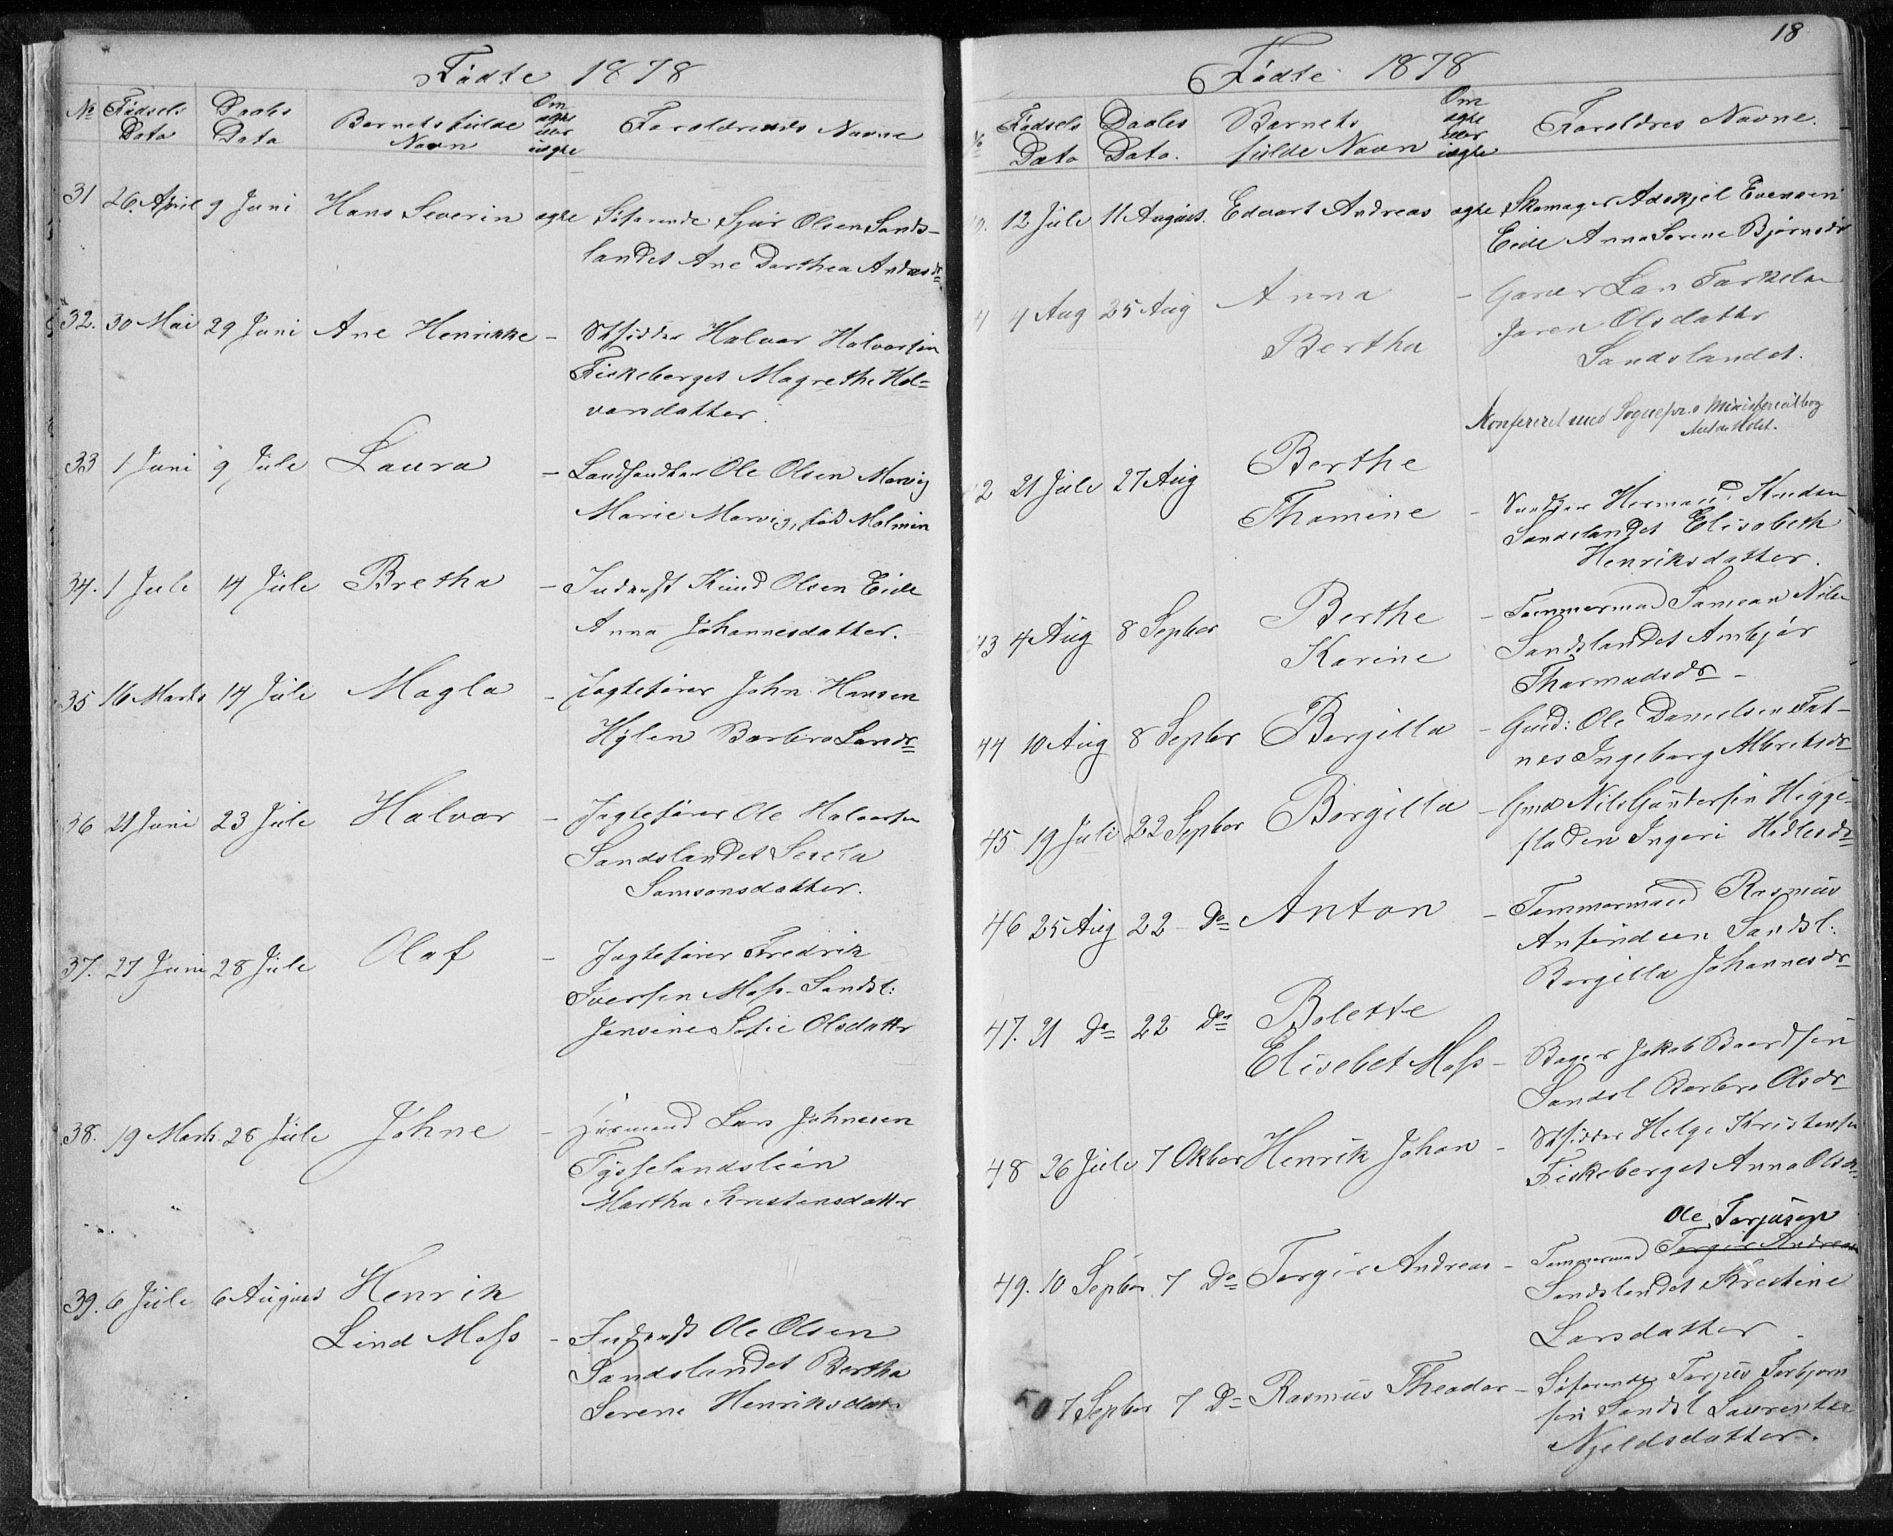 Fødte 1878
No Fødsels Daabs Barnets fulde Om ægte eller uægte Forældrenes Navne
Dato Data Navn
31 26. April 9 Juni Hans Severin ægte Søfarende Sjur Olsen Sands-
landet Ane Dorthea Andrsdr
32. 30 Mai 29 Juni Ane Henrikke - Stsidder Halvor Halvorsen
Fiskeberget Magrethe Hal-
vorsdatter.
33 1 Juni 9 Jule Laura - Landhandler Ole Olsen Marvig
Marie Marvig, fød Malmin
34. 1 Jule 14 Jule Bretha - Inderst Knud Olsen Eide
Anna Johannesdatter.
35 16 Marts 14 Jule Magla - Jagtefører John Hansen
Hylen Barbro Larsdr
36 21 Juni 23 Jule Halvor - Jagtefører Ole Halvorsen
Sandslandet
Samsonsdatter.
37. 27 Juni 28 Jule Olaf - Jagtefører Fredrik
Iversen Moss Sandsl:
Jensine Sofie Olsdattr
38. 19 Marts 28 Jule Johne - Lars Johnesen
Tysselandslien
Martha Kristensdattr
39. 6 Jule 6 August Henrik
Lind Moss - Inderst Ole Olsen
Sandslandet Bertha
Serene Henriksdatr
18
Fødte 1878
Fødsels Daabs Barnets Om ægte eller uægte Forældres Navne.
Dato Dato. fulde Navn
12 Jule 11 August. Edvart Andreas ægte Skomager Adskjel Evensen
Eide Anna Serene Bjørnsdr
4 Aug 25 Aug Anna - Garver Lars Torkels
Bertha Olsdatter
Sandslandet.
Konfereret med Sognepr.s Ministerialbog
2 21 Jule 27 Aug Berthe
Thomine - Herman Knudsen
Sandslandet Elisabeth
Henriksdatter.
43 4 Aug 8 Septbr Berthe - Tømmermand Samson Nils
Karine Sandslandet Anbjør
Thormodsdr -
44 10 Aug 8 Septbr Borgilla - Gmd: Ole Danielsen Fat-
nes Ingeborg Albretsdr
45 19 Jule 22 Septbr Borgilla - Gmd Nils Gundersen Higge-
fladen Ingeri Hedlesdr
46 25 Aug 22 Do Anton - Tømmermand Rasmus
Anfindsen Sandsl:
Borgilla Johannesdr
47. 21 Do 22 Do Bolette
Elisebet Moss - Bager Jakob Baardsen
Sandsl Barbro Olsdr
48 26 Jule 7 Oktbor Henrik Johan - Stsidder Helge Kristensen
Fiskeberget Anna Olsdr
Ole Torjusen
49. 10 Septbr 7 Do Torgir Andreas - Tømmermand Torgir Andreas
Sandslandet Krestine
Larsdatter -
50 7 Septbr 7 Do Rasmus Theodor - Søfarende Torjus Torbjørn
sen Sandsl Laurentse
Njeldsdatter.